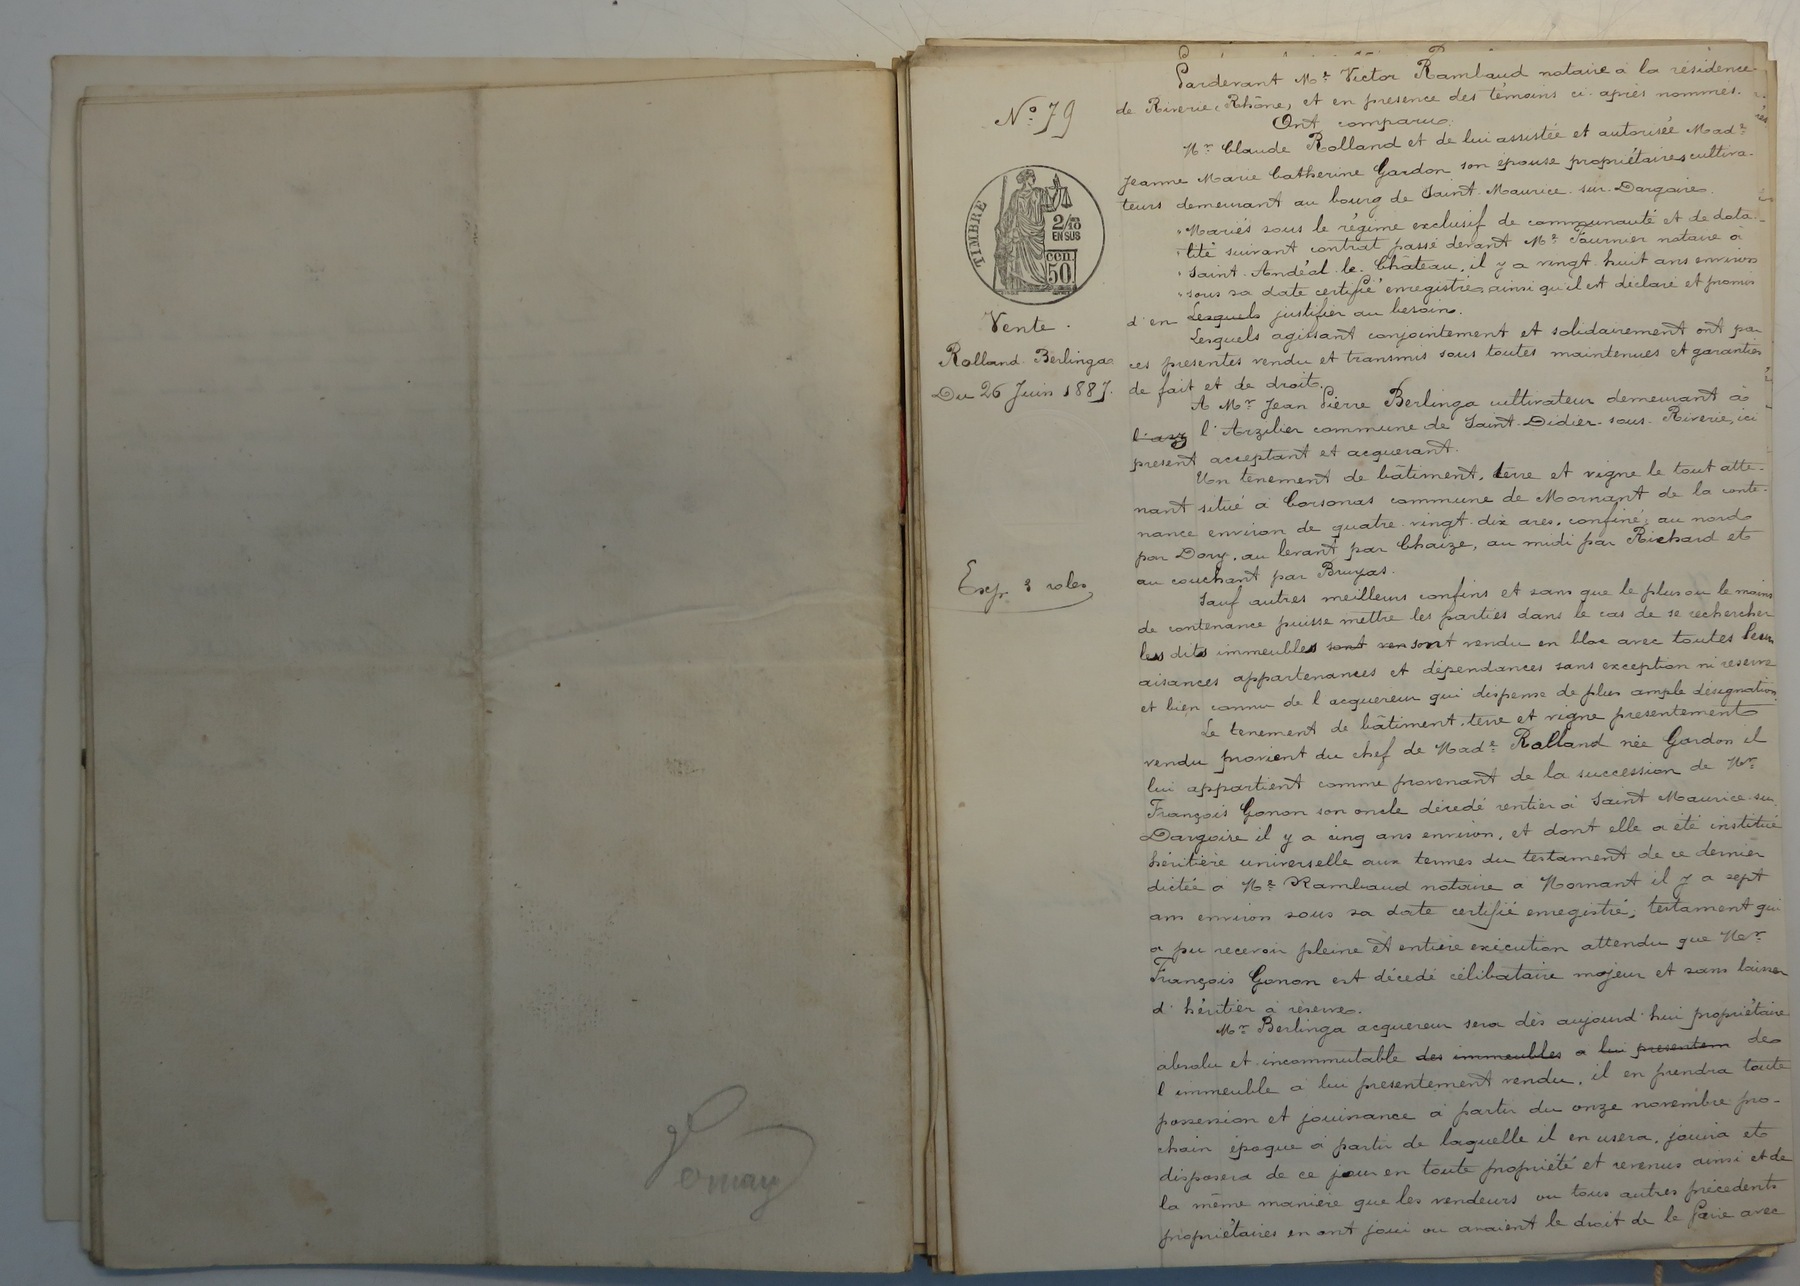 Vernay
N° 79
TIMBRE
2/10
EN SUS
cen.
50
Vente.
Rolland Berlinga
Du 26 Juin 1887.
Exp. 3 roles
Pardevant Me Victor Rambaud notaire à la résidence
de Riverie, Rhône, et en presence des témoins ci-après nommés.
Ont comparu.
Mr Claude Rolland et de lui assistée et autorisée Made
Jeanne Marie Catherine Gardon son épouse propriétaires cultiva-
teurs demeurant au bourg de Saint-Maurice-sur-Dargoire.
"Mariés sous le régime exclusif de communauté et de dota-
"lité suivant contrat passé devant Me Fournier notaire à
"Saint-Andéol-le-Château, il y a vingt-huit ans environ
"sous sa date certifié enregistré, ainsi qu'il est déclaré et promis
d'en Lesquels justifier au besoin.
Lesquels agissant conjointement et solidairement ont par
ces presentes vendu et transmis sous toutes maintenues et garanties
de fait et de droit.
A Mr Jean Pierre Berlinga cultivateur demeurant à
l'arz l'Arzilier commune de Saint-Didier-sous-Riverie, ici
present acceptant et acquerant.
Un tènement de bâtiment, terre et vigne le tout atte-
nant situé à Corsonas commune de Mornant de la conte-
nance environ de quatre-vingt-dix ares, confiné; au nord
par Dory, au levant par Chaize, au midi par Richard et
au couchant par Bruyas.
Sauf autres meilleurs confins et sans que le plus ou le moins
de contenance puisse mettre les parties dans le cas de se rechercher
les dits immeubles sont ven sont vendu en bloc avec toutes leurs
aisances appartenances et dépendances sans exception ni reserve
et bien connu de l'acquereur qui dispense de plus ample désignation
Le tenement de bâtiment, terre et vigne presentement
vendu provient du chef de Made Rolland née Gardon il
lui appartient comme provenant de la succession de Mr
François Gonon son oncle décédé rentier à Saint Maurice-sur
Dargoire il y a cinq ans environ, et dont elle a été institué
héritière universelle aux termes du testament de ce dernier
dictée à Me Rambaud notaire à Mornant il y a sept
ans environ sous sa date certifié enregistré, testament qui
a pu recevoir pleine et entière exécution attendu que Mr
François Gonon est décédé célibataire majeur et sans laisser
d'héritier à réserve.
Mr Berlinga acquereur sera dès aujourd'hui propriétaire
absolu et incommutable des immeubles a lui presentem de
l'immeuble à lui presentement vendu, il en prendra toute
possession et jouissance à partir du onze novembre pro-
chain époque à partir de laquelle il en usera, jouira et
disposera de ce jour en toute propriété et revenus ainsi et de
la même manière que les vendeurs ou tous autres précédents
propriétaires en ont joui ou avaient le droit de le faire avec